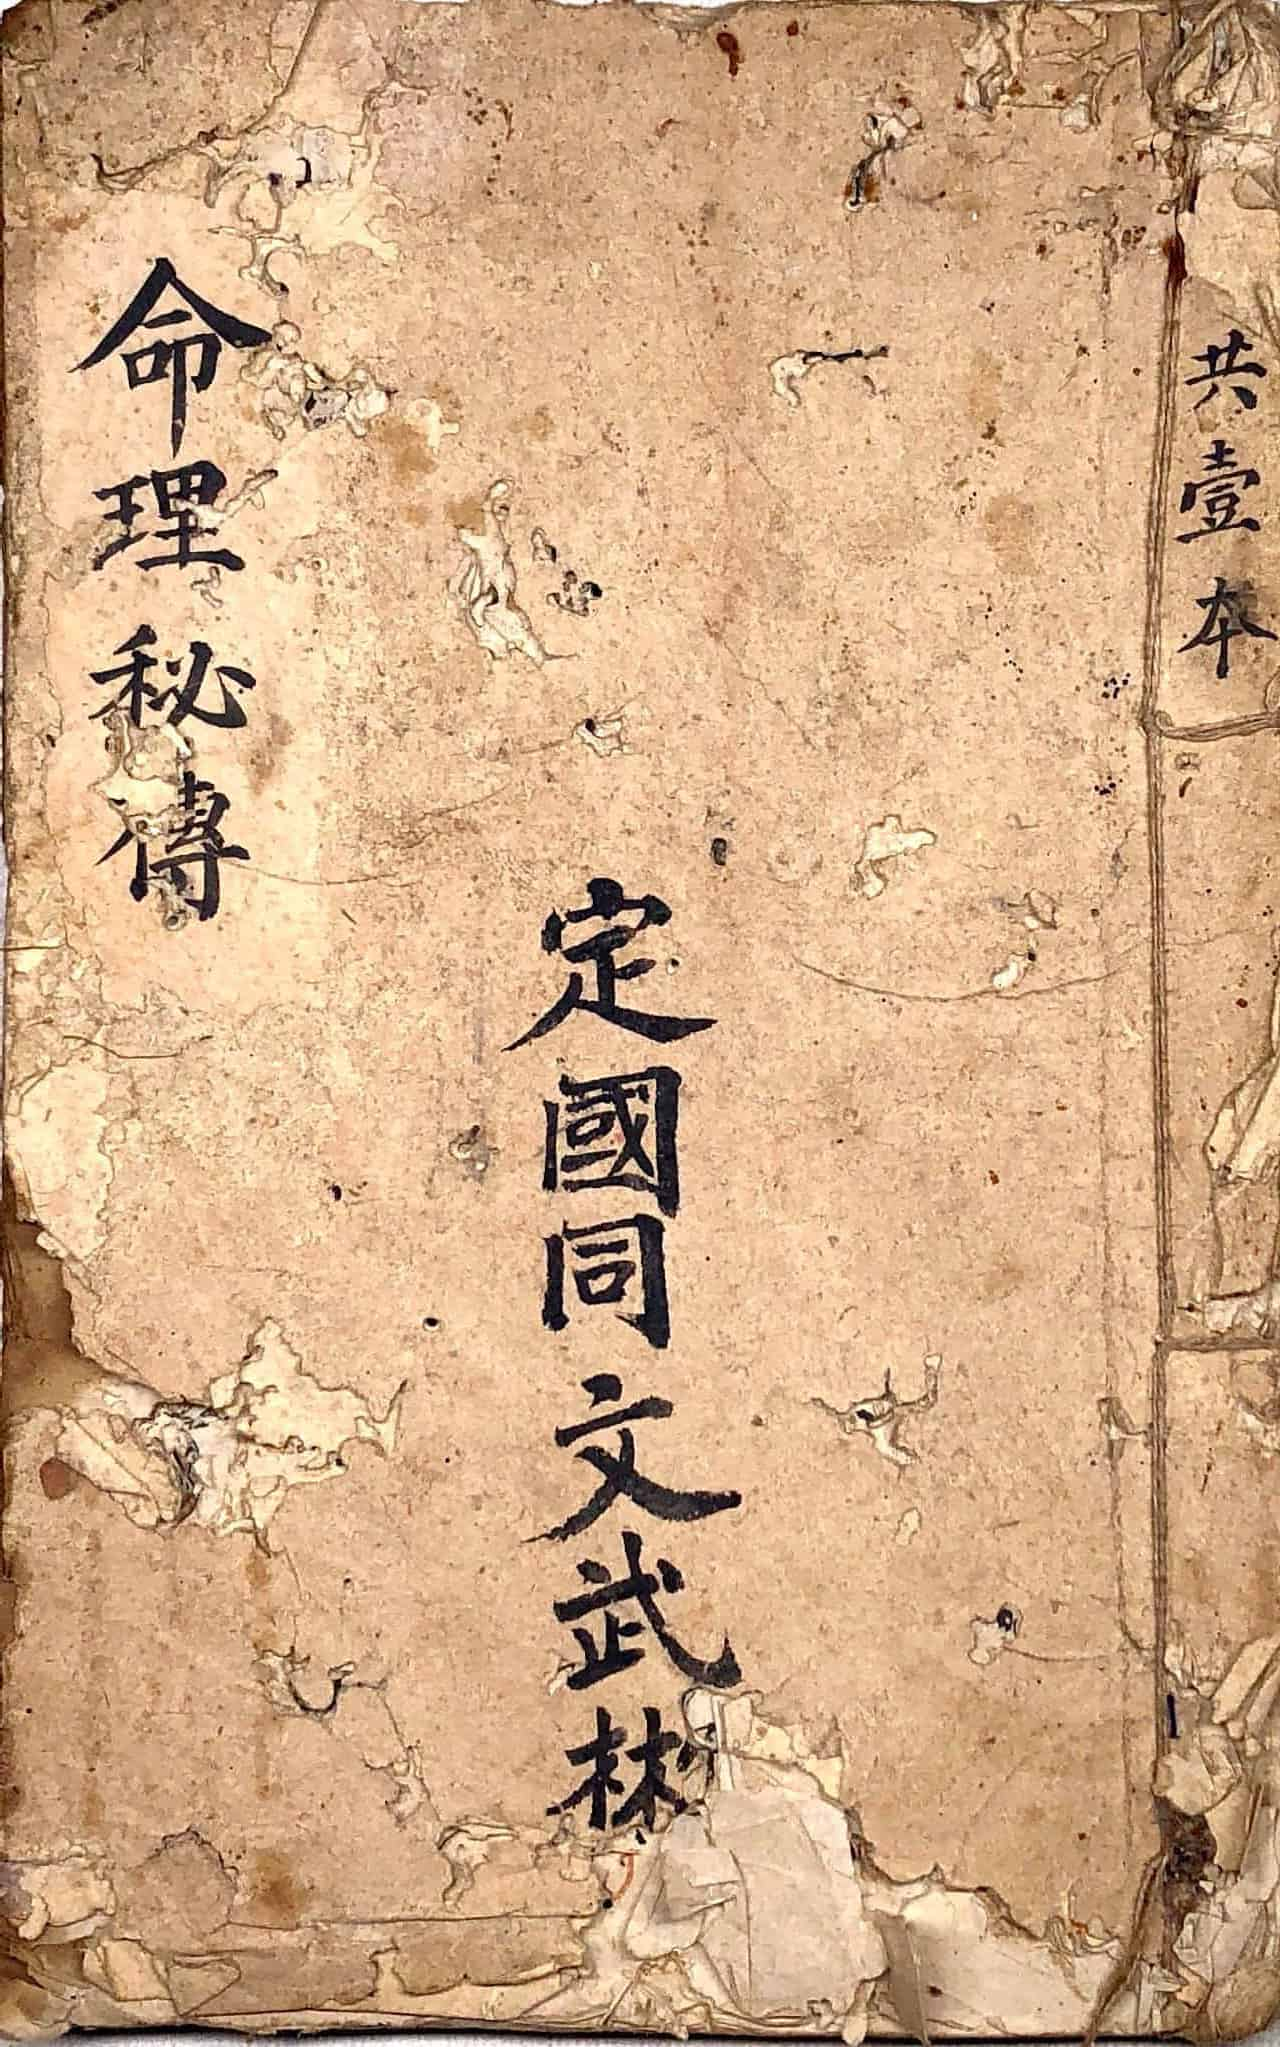 共壹本
定國同文武彬
命理秘傳